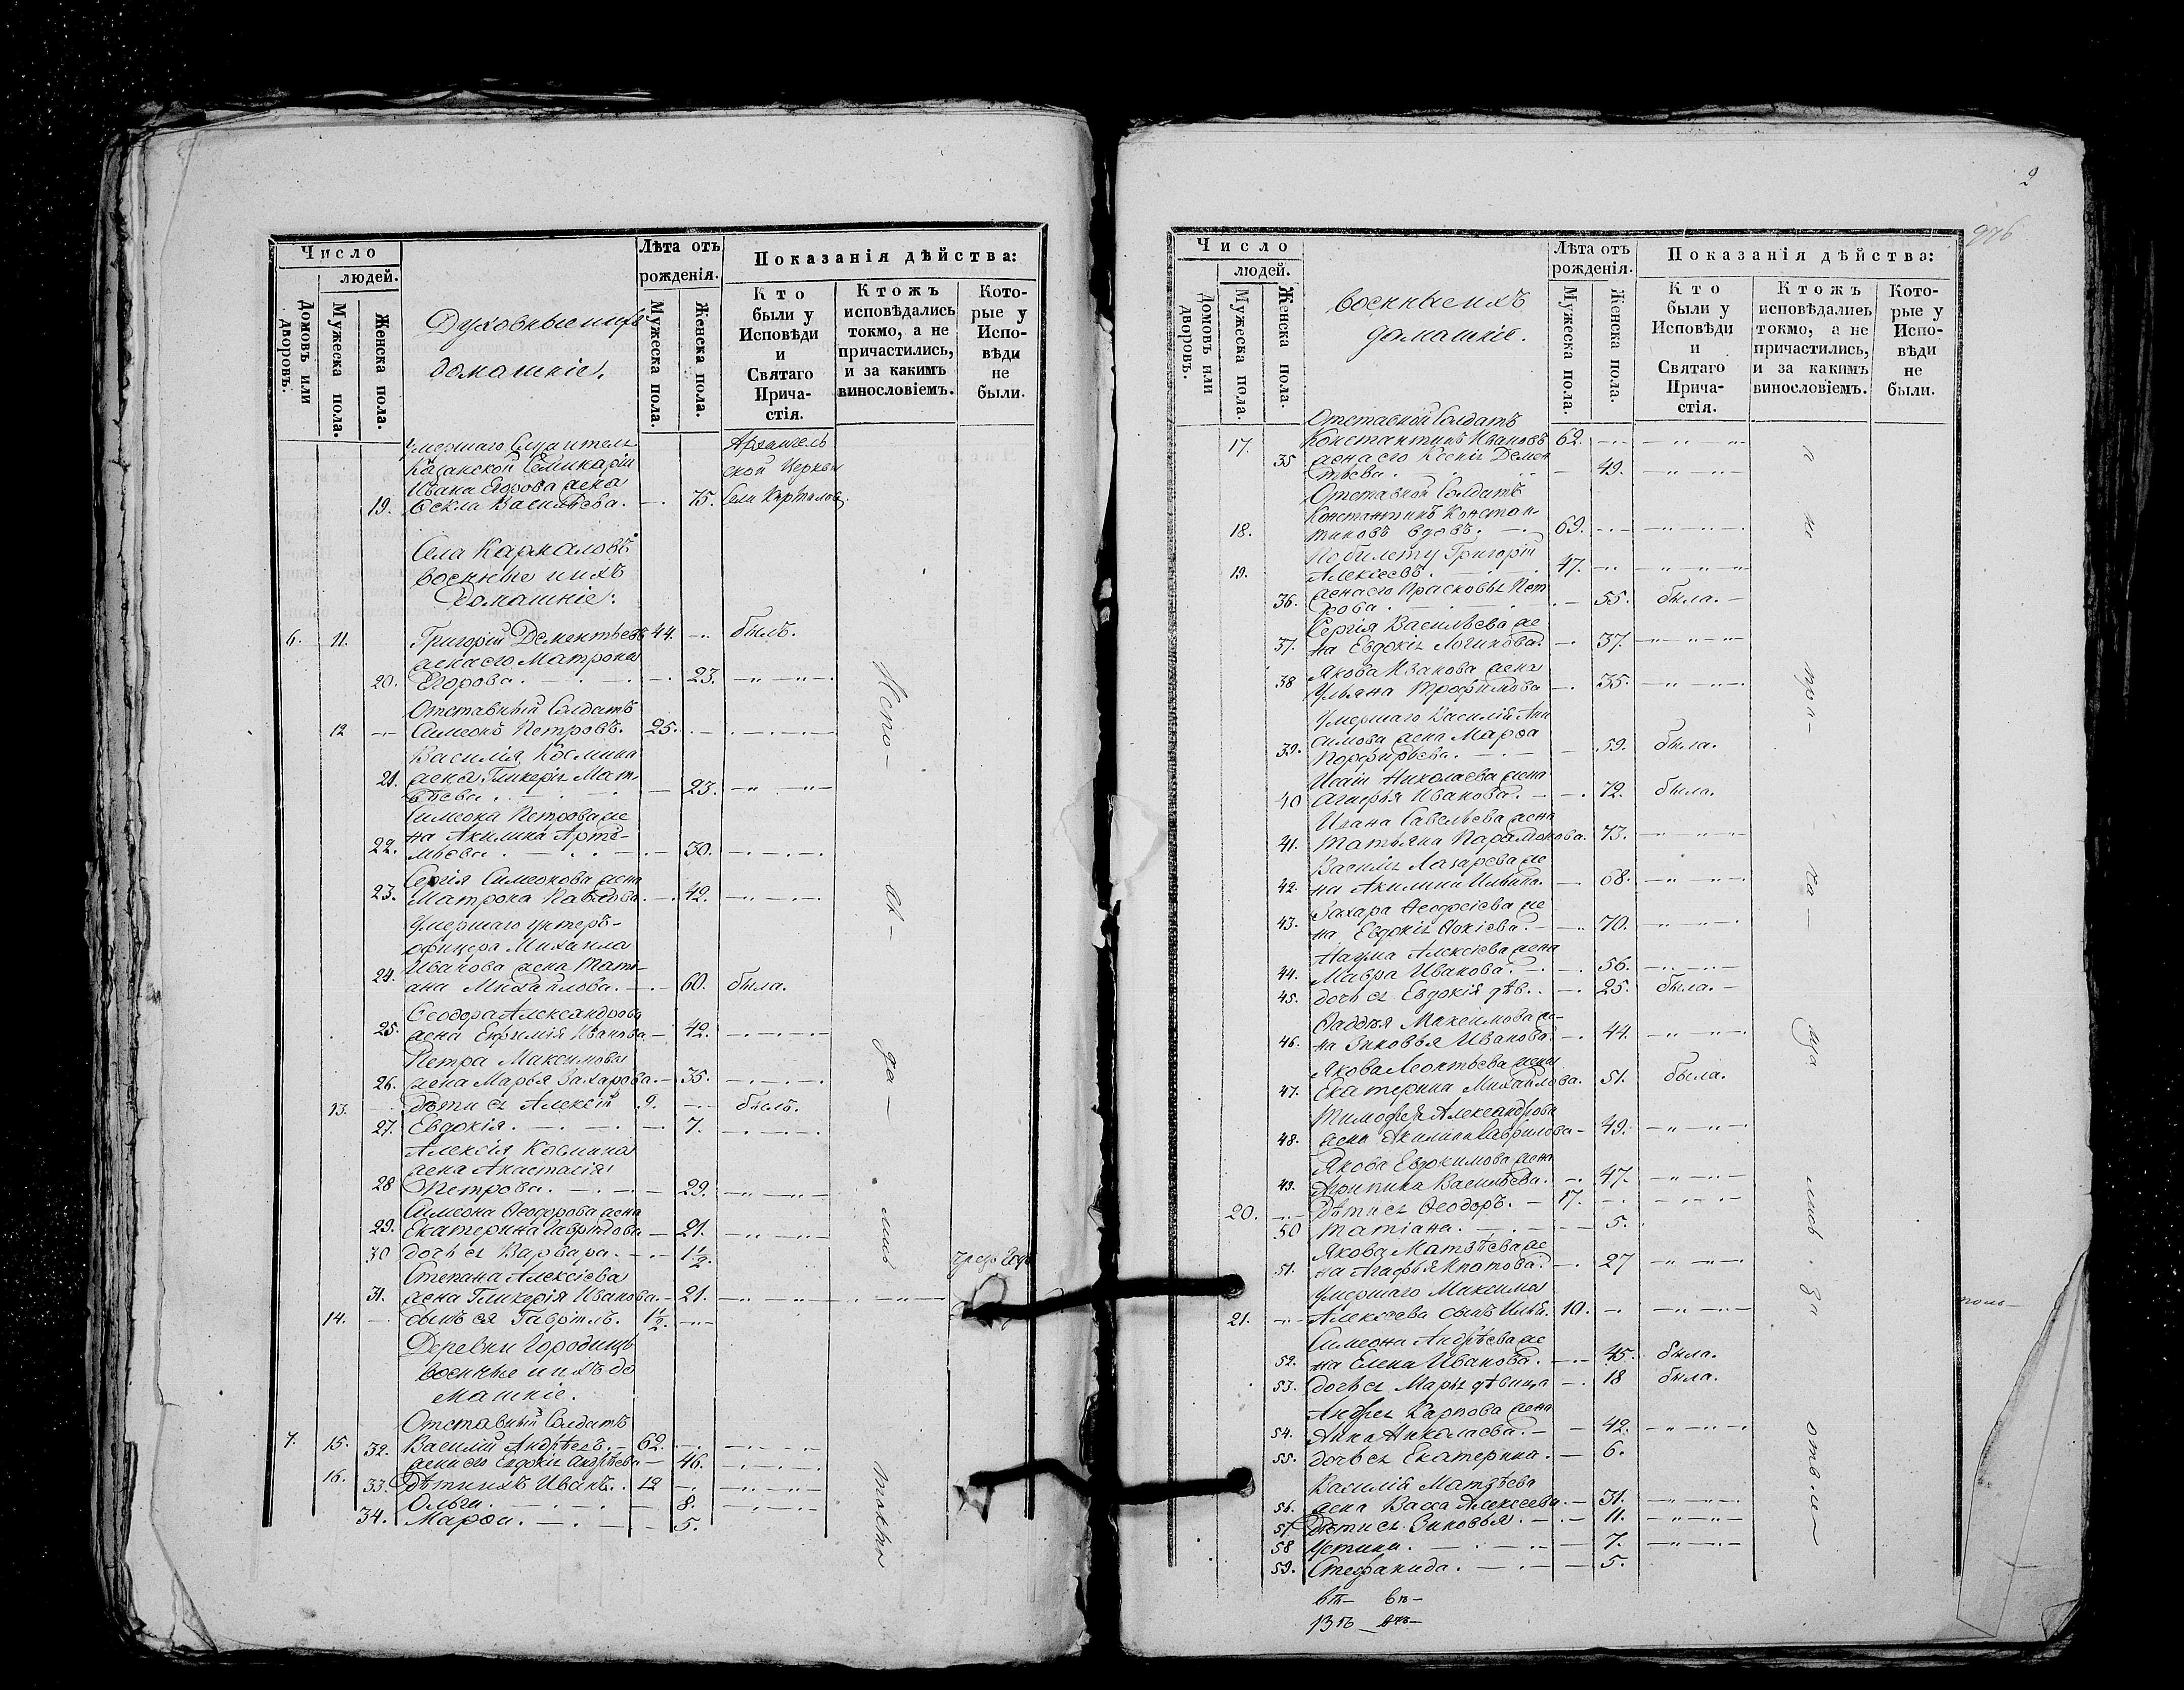 Число
людей.
Домовъ или дворовъ.
Мужеска пола.
Женска пола.
Духовные и ихъ
домашніе.
Лѣта отъ
рожденія.
Мужеска пола.
Женска пола.
Показанія дѣйства:
Кто
были у
Исповѣди
и
Святаго
Прича-
стія.
Ктожъ
исповѣдались
токмо, а не
причастились,
и за какимъ
винословіемъ.
Кото-
рые у
Испо-
вѣди
не
были.
умершаго
Казанской Семинаріи
Ивана Егорова жена
19. Ѳекла Васильева. — 75.
Архангель
ской Церкви
Села
Села
военные и ихъ
Домашніе:
6. 11. Григорій Дементьевъ 44. — былъ.
жена его Матрона
20. Егорова. — 23.
Отставный Солдатъ
12 — Симеонъ Петровъ. 25.
Василія Косьмина
21. жена Гликерія Мат-
вѣева. — 23.
Симеона Петрова же
22. на Акилина Артѣ-
мьева — 30.
Сергія Симеонова жена
23. Матрона Павлова. — 42.
Умершаго унтеръ-
офицера Михаила
24. Иванова жена Тати-
ана Михайлова. — 60. была.
Ѳеодора Александрова
25. жена Евфимія Иванова — 42.
Петра Максимова
26. жена Марья Захарова. — 35.
13. Дѣти ея Алексій 9. — былъ.
27. Евдокія. — 7.
Алексія Косьмина
жена Анастасія
28 Петрова. — 29.
Симеона Ѳеодорова жена
29. Екатерина Гаврилова — 21.
30 дочь ея Варвара. — 1½.
Степана Алексіева
31. жена Гликерія Иванова. — 21.
14. — сынъ ея Гавріилъ. 1½.
Деревни Городищъ
военные и ихъ до
машніе.
Отставный Солдатъ
7. 15. Василій Андрѣевъ. — 62.
32. жена его Евдокія Андрѣева — 46.
16. Дѣти ихъ Иванъ. 12
33. Ольга. — 8.
34. Марѳа. — 5.
Испо-
вѣ-
да-
лись
токмо
2
976
Число
людей.
Домовъ или дворовъ.
Мужеска пола.
Женска пола.
военные ихъ
домашніе.
Лѣта отъ
рожденія.
Мужеска пола.
Женска пола.
Показанія дѣйства:
Кто
были у
Исповѣди
и
Святаго
Прича-
стія.
Ктожъ
исповѣдались
токмо, а не
причастились,
и за какимъ
винословіемъ.
Кото-
рые у
Испо-
вѣди
не
были.
Отставной Солдатъ
17. Константинъ Ивановъ 62.
35 жена его Ксенія Демен
тьева. — 49.
Отставной Солдатъ
Константинъ Констан-
18. тиновъ вдовъ. — 69.
По билету Григорій
19. Алексіевъ. 47.
36. жена его Прасковья Пет
рова. — 55. была. —
Сергія Васильева же
37. на Евдокія Логинова. — 37.
Якова Иванова жена
38 Ульяна Трофимова — 35.
Умершаго Василія Ани
симова жена Марѳа
39. Порфирьева. — 59. была.
Исаіи Николаева жена
40 Агафья Иванова. — 72. была.
Ивана Савельева жена
41. Татьяна Парамонова. 73.
Василія Лазарева же
42. на Акилина Ильина. — 68.
Захара Ѳеодосіева же
43. на Евдокія — 70.
Наума Алексіева жена
44. Мавра Иванова. — 56.
45. дочь ея Евдокія дѣв. — 25. была. —
Ѳаддея Максимова же-
46. на Зиновья Иванова. — 44.
Якова Леонтьева жена
47. Екатерина Михайлова. 51. была.
Тимофея Александрова
48. жена Акилина Гаврилова — 49.
Якова Евдокимова жена
49. Агрипина Васильева. — 47.
20. Дѣти ея Ѳеодоръ. — 17.
50 Татіана. — 5.
Якова Матвѣева же
51. на Агафья Ипатова. — 27
умершаго Максима
21. Алексеева сынъ 10.
Симеона Андрѣева же
52. на Елена Иванова. — 45. была.
53. дочь ея Марья дѣвица — 18 была.
Андрея Карпова жена
54. Анна Николаева. — 42.
55. дочь ея Екатерина. — 6.
Василія Матвѣева
56. жена Васса Алексеева. — 31.
57. Дѣти ея Зиновья. — 11.
58 Устина. — 7.
59. Стефанида. — 5.